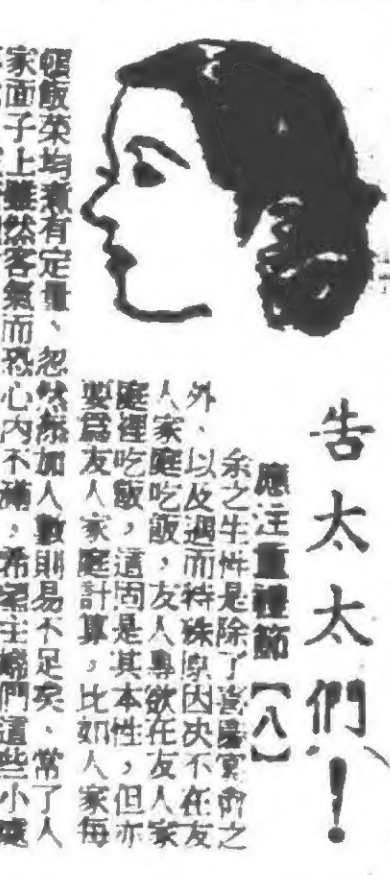 告太太們！
應注重禮節【八】
余之生性是除了喜慶宴會之
外、以及遇而特殊原因決不在友
人家庭吃飯，友人專欲在友人家
庭裡吃飯，這固是其本性，但亦
要爲友人家庭計算，比如人家每
頓飯菜均有定量、忽然添加人數則易不足矣、常了人
家面子上雖然客氣而恐心內不滿，希望主婦們這些小處